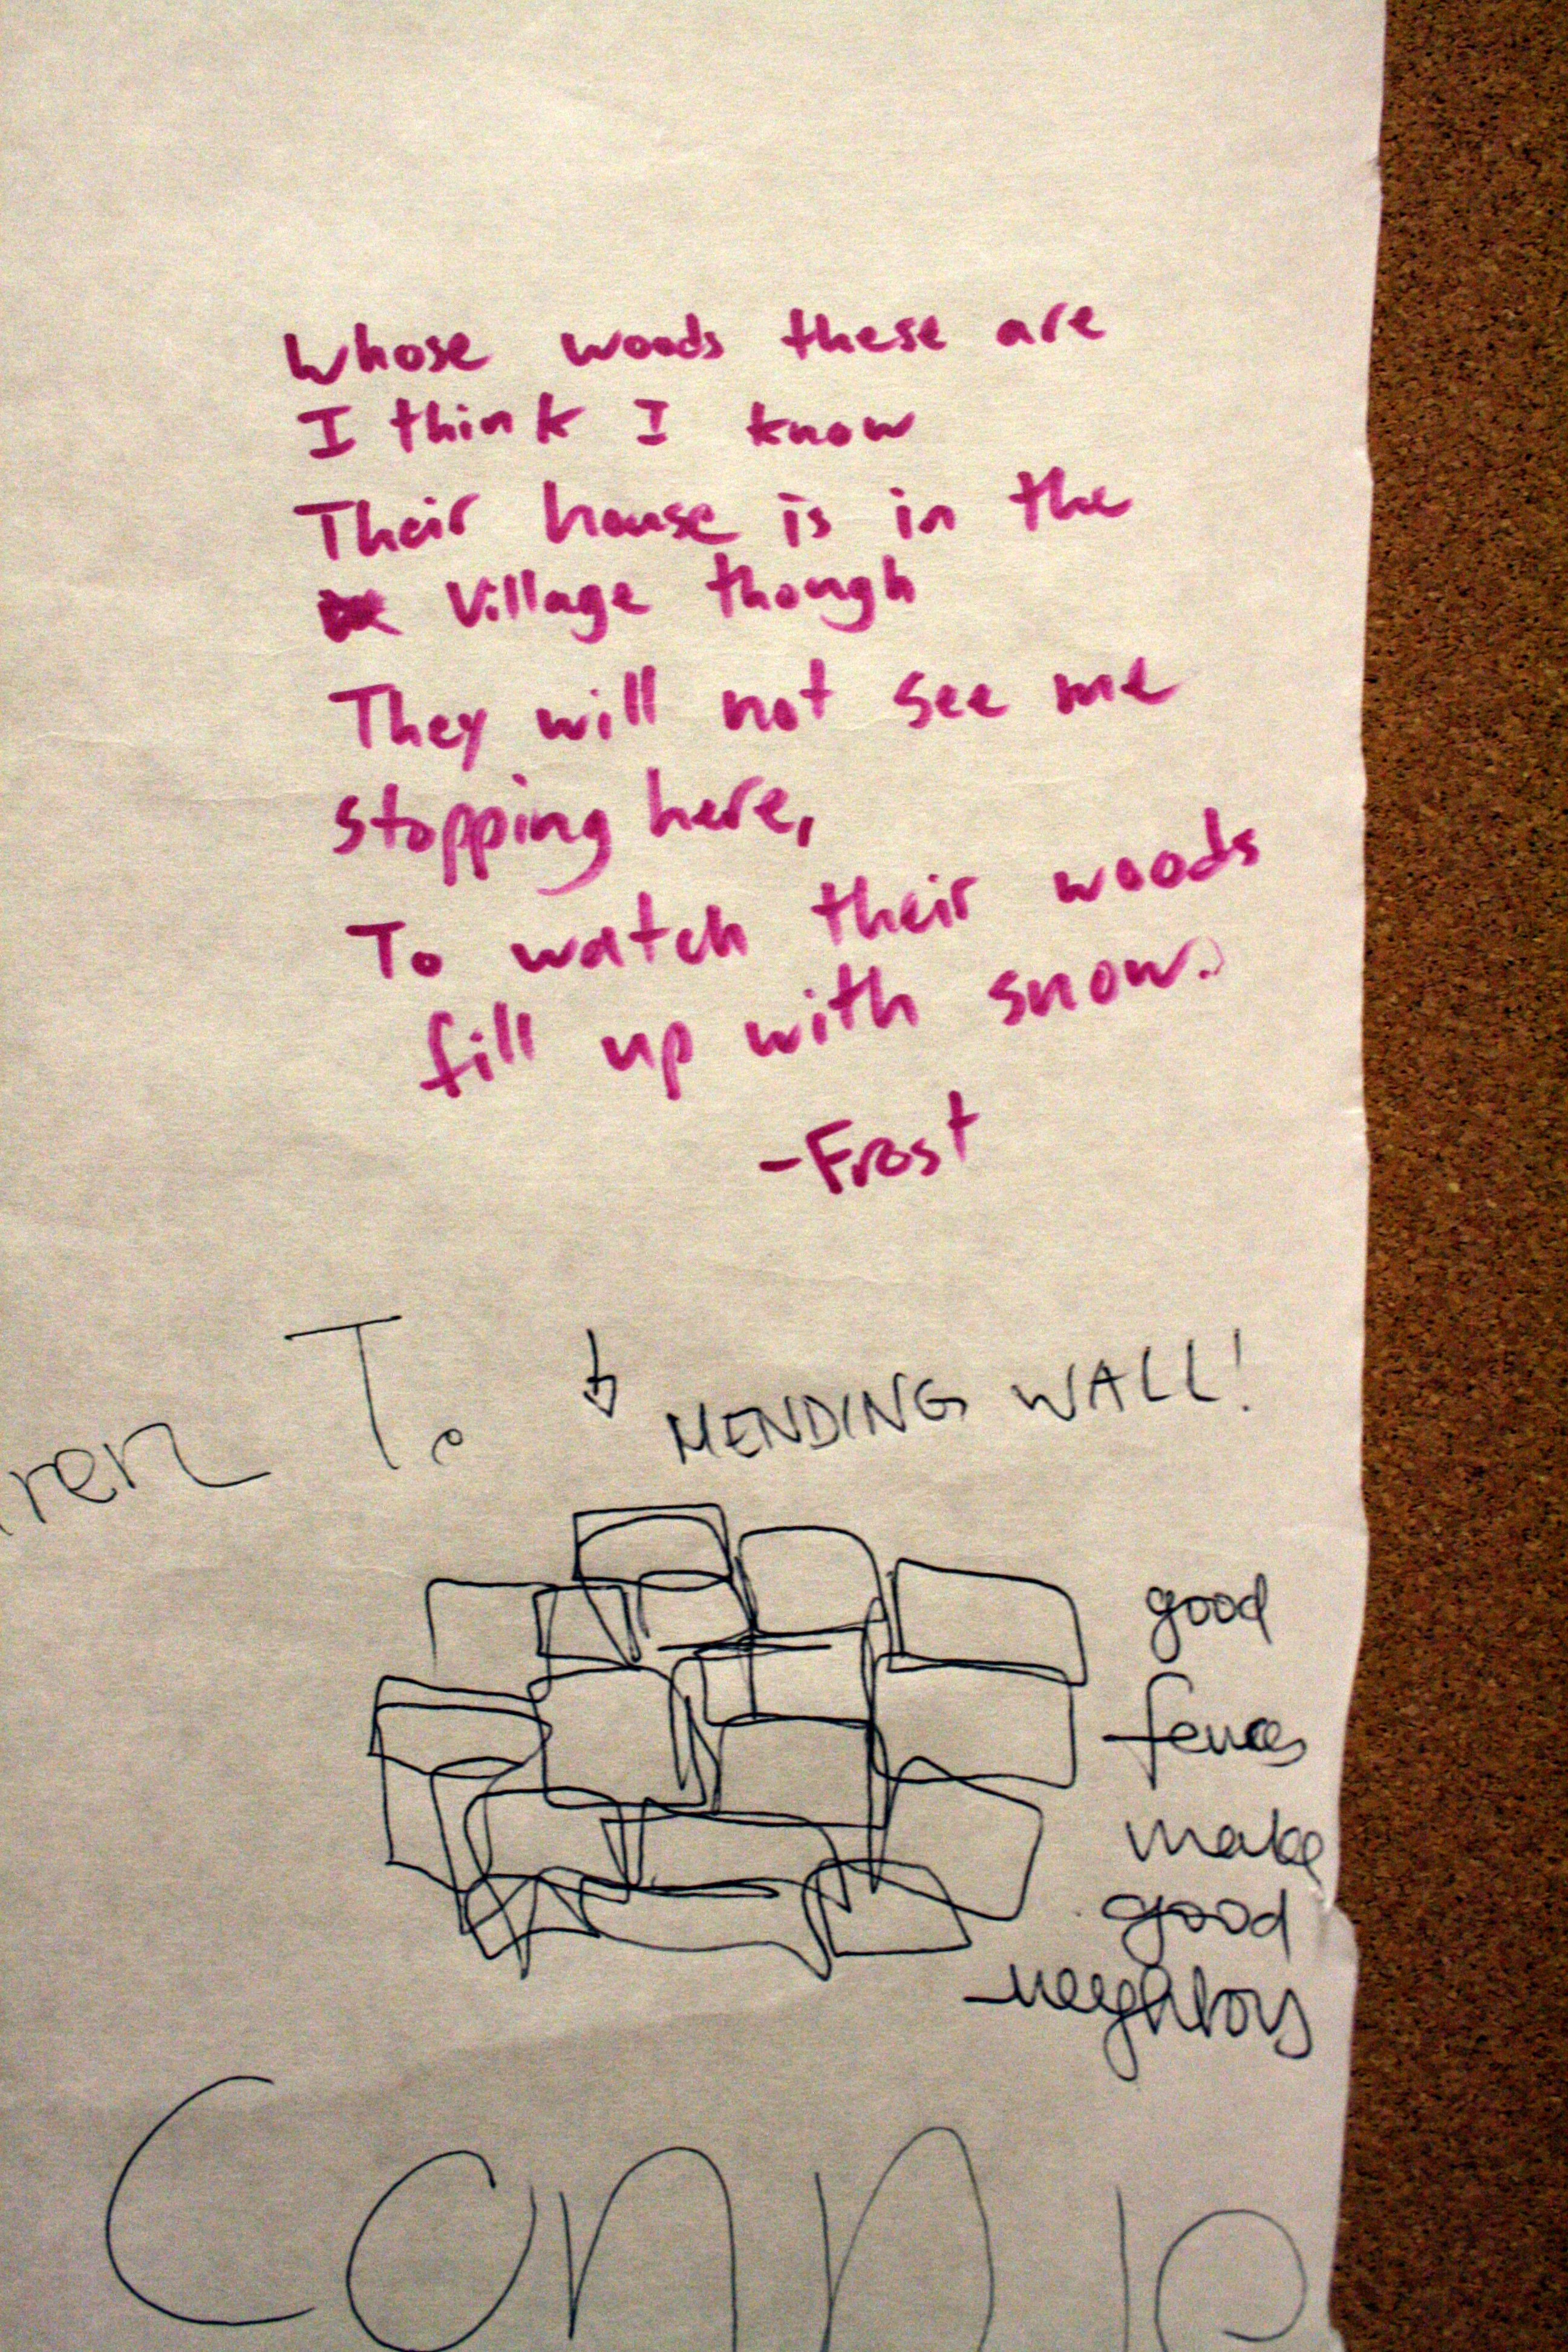 Whose woods these are
I think I know
Their house is in the
Village though
They will not see me
stopping here,
To watch their woods
fill up with snow.
-Frost
ren To
MENDING WALL!
good
fences
make
good
neighbors
Connie